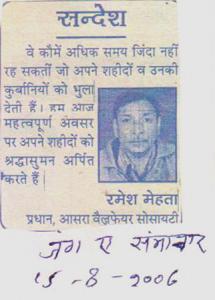 सन्देश
वे कौमें अधिक समय जिंदा नहीं
रह सकतीं जो अपने शहीदों व उनकी
कुर्बानियों को भुला
देती हैं। हम आज
महत्वपूर्ण अवसर
पर अपने शहीदों को
श्रद्धासुमन अर्पित
करते हैं।
रमेश मेहता
प्रधान, आसरा वैल्फ़ेयर सोसायटी
जंग ए संमाचार
15-8-2006